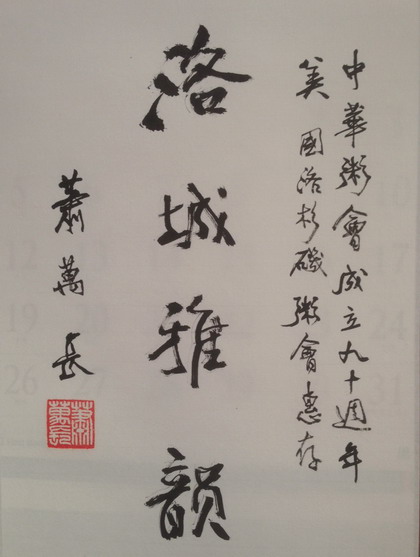 中華粥會成立九十週年
美國洛杉磯粥會惠存
洛城雅韻
蕭萬長
蕭萬長